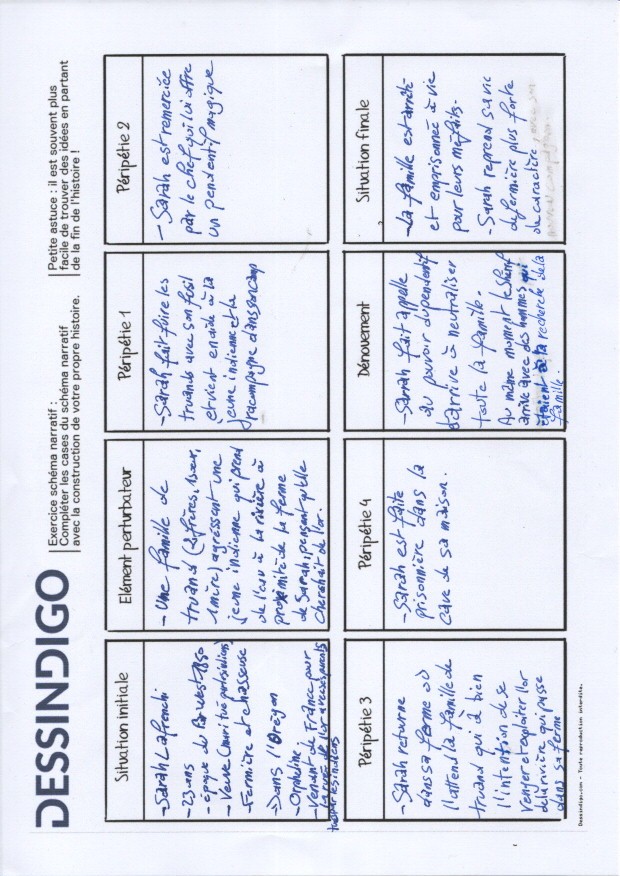 DESSINDIGO
Exercice schéma narratif :
Compléter les cases du schéma narratif
avec la construction de votre propre histoire.
Petite astuce : il est souvent plus
facile de trouver des idées en partant
de la fin de l'histoire !
Situation initiale
- Sarah Lafrenchi
- 23 ans
- époque du
- Veuve (mari tué par
Fermière et chasseuse
-> Dans l'Orégon
- Orpheline
- Venant de France pour
Elément perturbateur
- Une famille de
truand (2 frères, 1 sœur,
1 mère) agressent une
jeune indienne qui prend
de l'eau à la rivière à
proximité de la ferme
de Sarah, pensant qu'elle
cherchait de l'or.
Péripétie 1
- Sarah fait fuire les
truands avec son fusil
et vient en aide à la
jeune indienne et la
racompagne dans son camp
Péripétie 2
- Sarah est remerciée
par le chef qui lui offre
un pendentif magique
Péripétie 3
- Sarah retourne
dans sa ferme où
l'attend la famille de
truand qui à bien
l'intention de se
venger et exploiter l'or
de la rivière qui passe
dans sa ferme
Péripétie 4
- Sarah est faite
prisonnière dans la
cave de sa maison.
Dénouement
- Sarah fait appelle
au pouvoir du pendentif
et arrive à neutraliser
toute la famille.
Au même moment le shérif
arrive avec des hommes qui
étaient à la recherche de la
famille.
Situation finale
- La famille est arrêt-
et emprisonnée à vie
pour leurs méfaits.
- Sarah reprend sa vie
de fermière plus forte
de caractère
Dessindigo.com - Toute reproduction interdite.